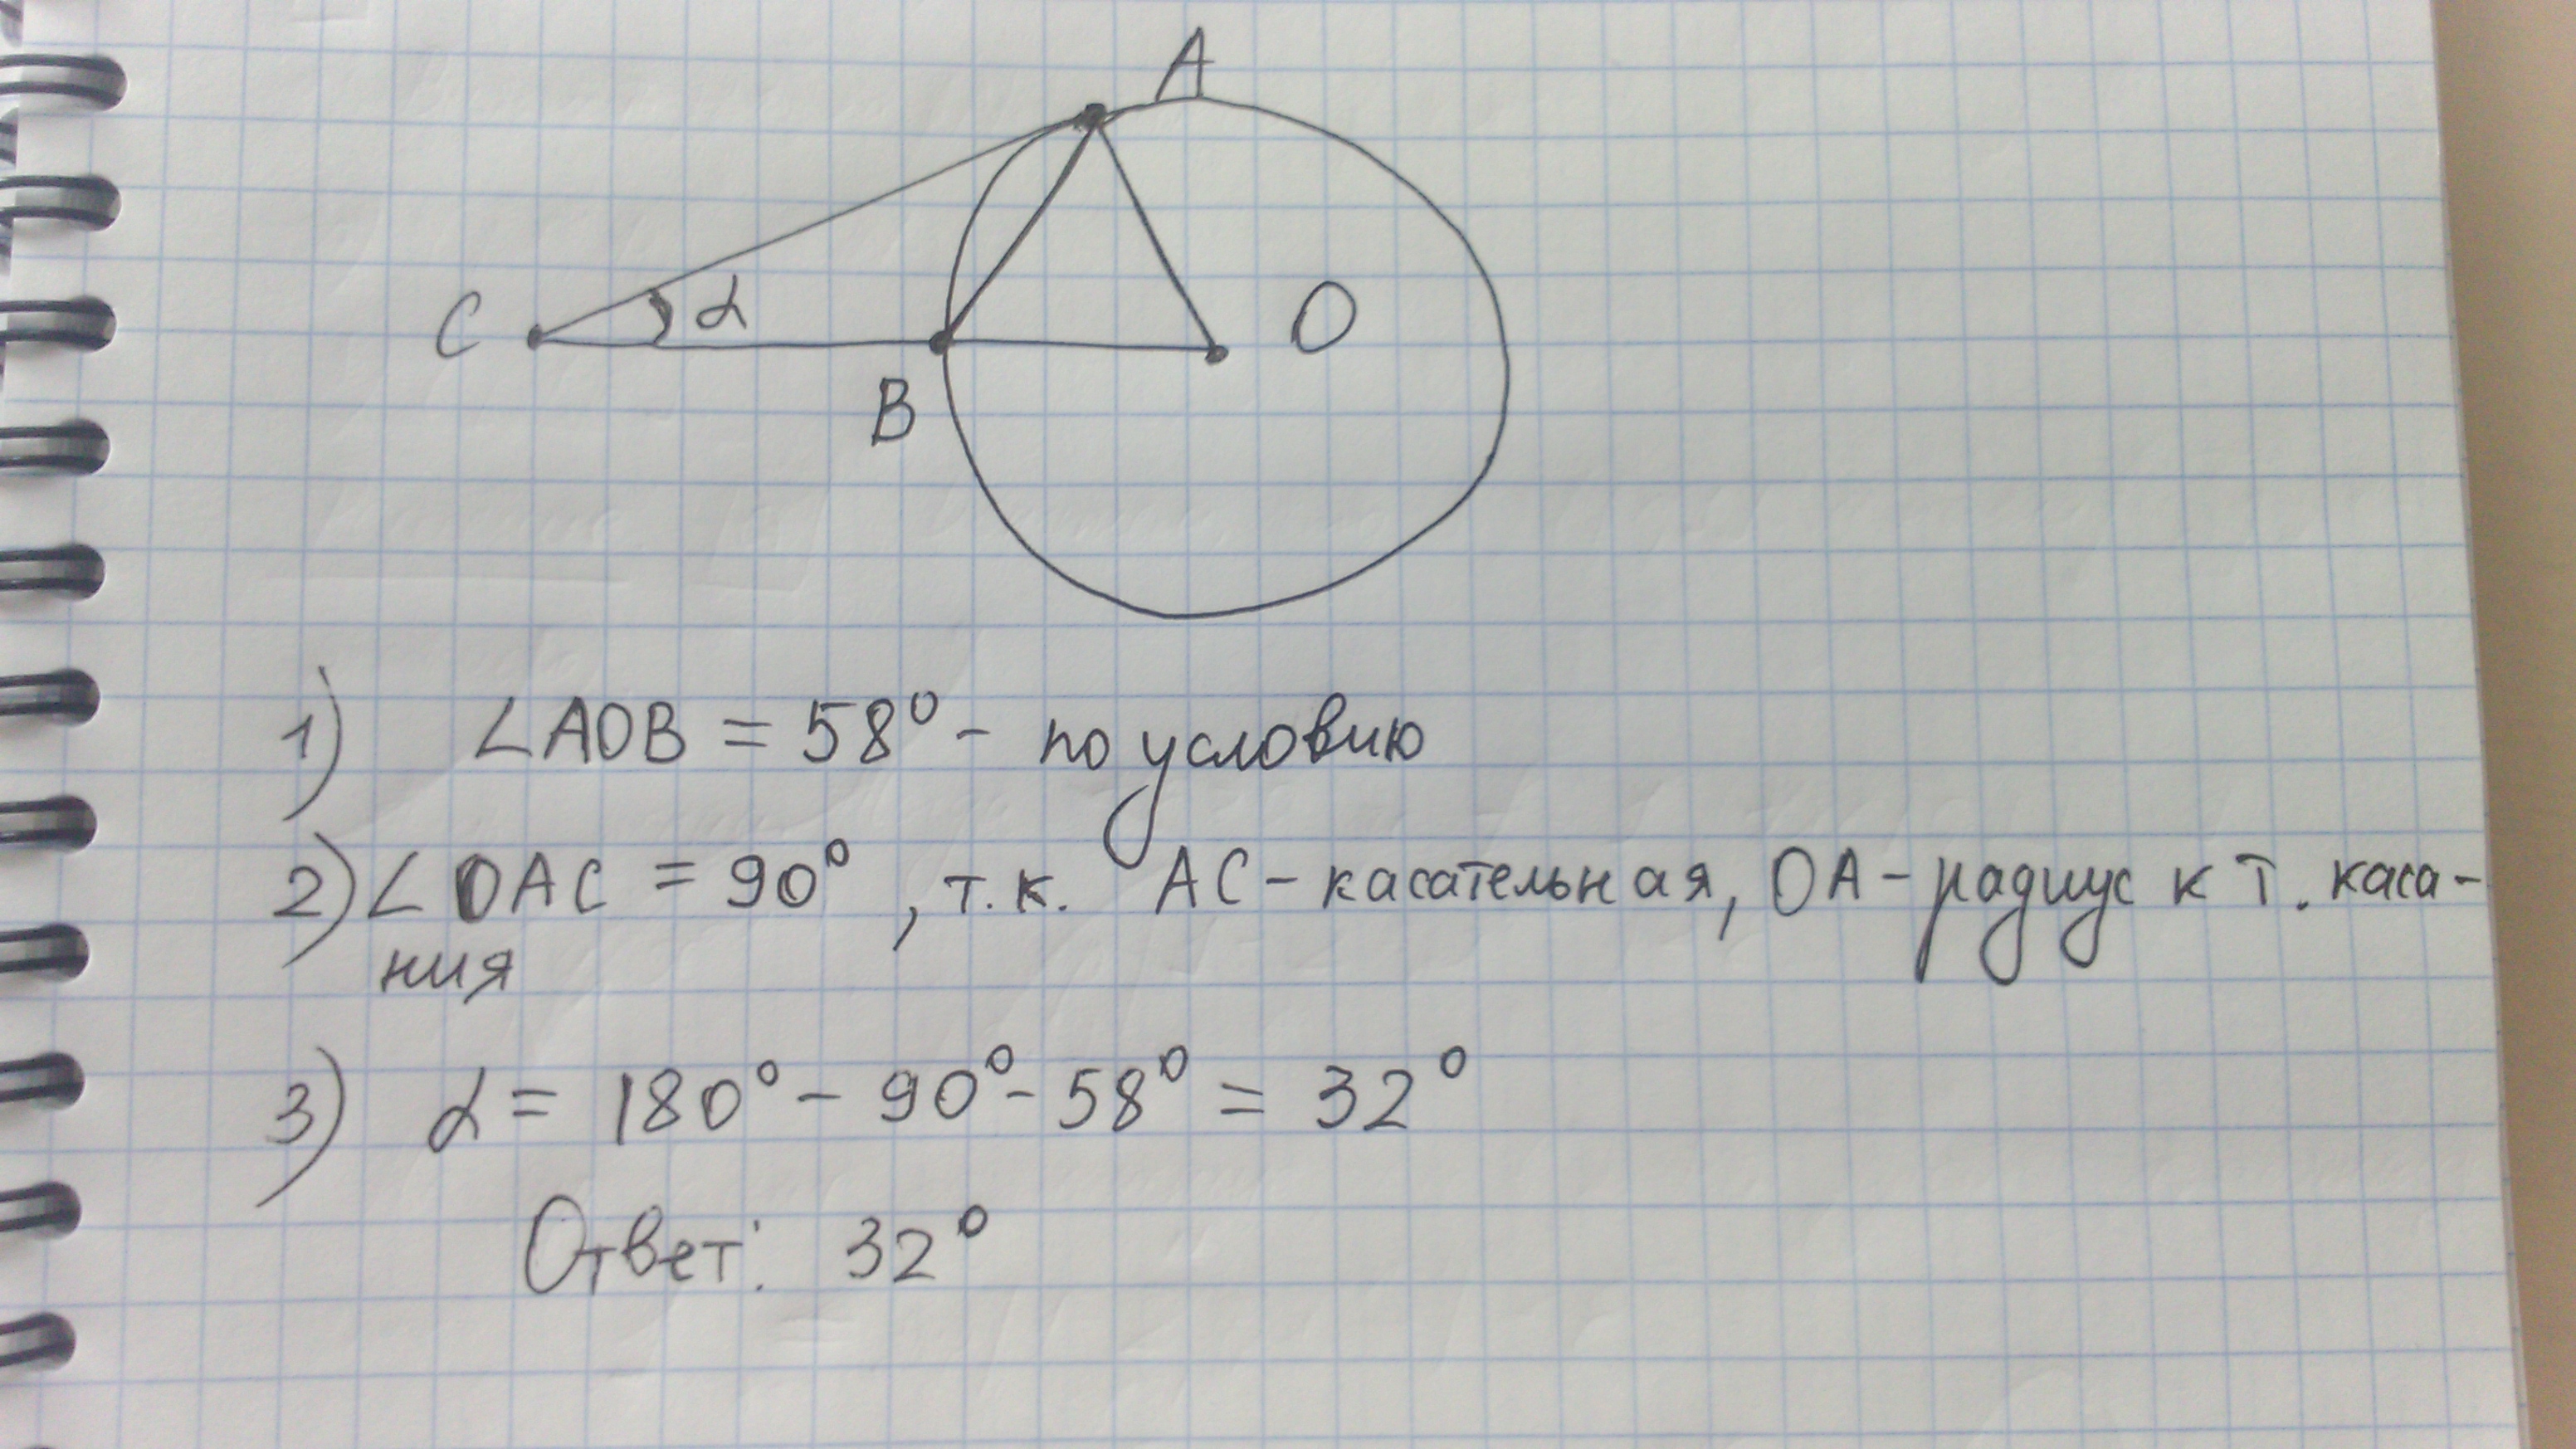 A
C
α
O
B
1) ∠AOB = 58° - по условию
2) ∠OAC = 90°, т.к. AC - касательная, OA - радиус к т. каса-
ния
3) α = 180° - 90° - 58° = 32°
Ответ: 32°